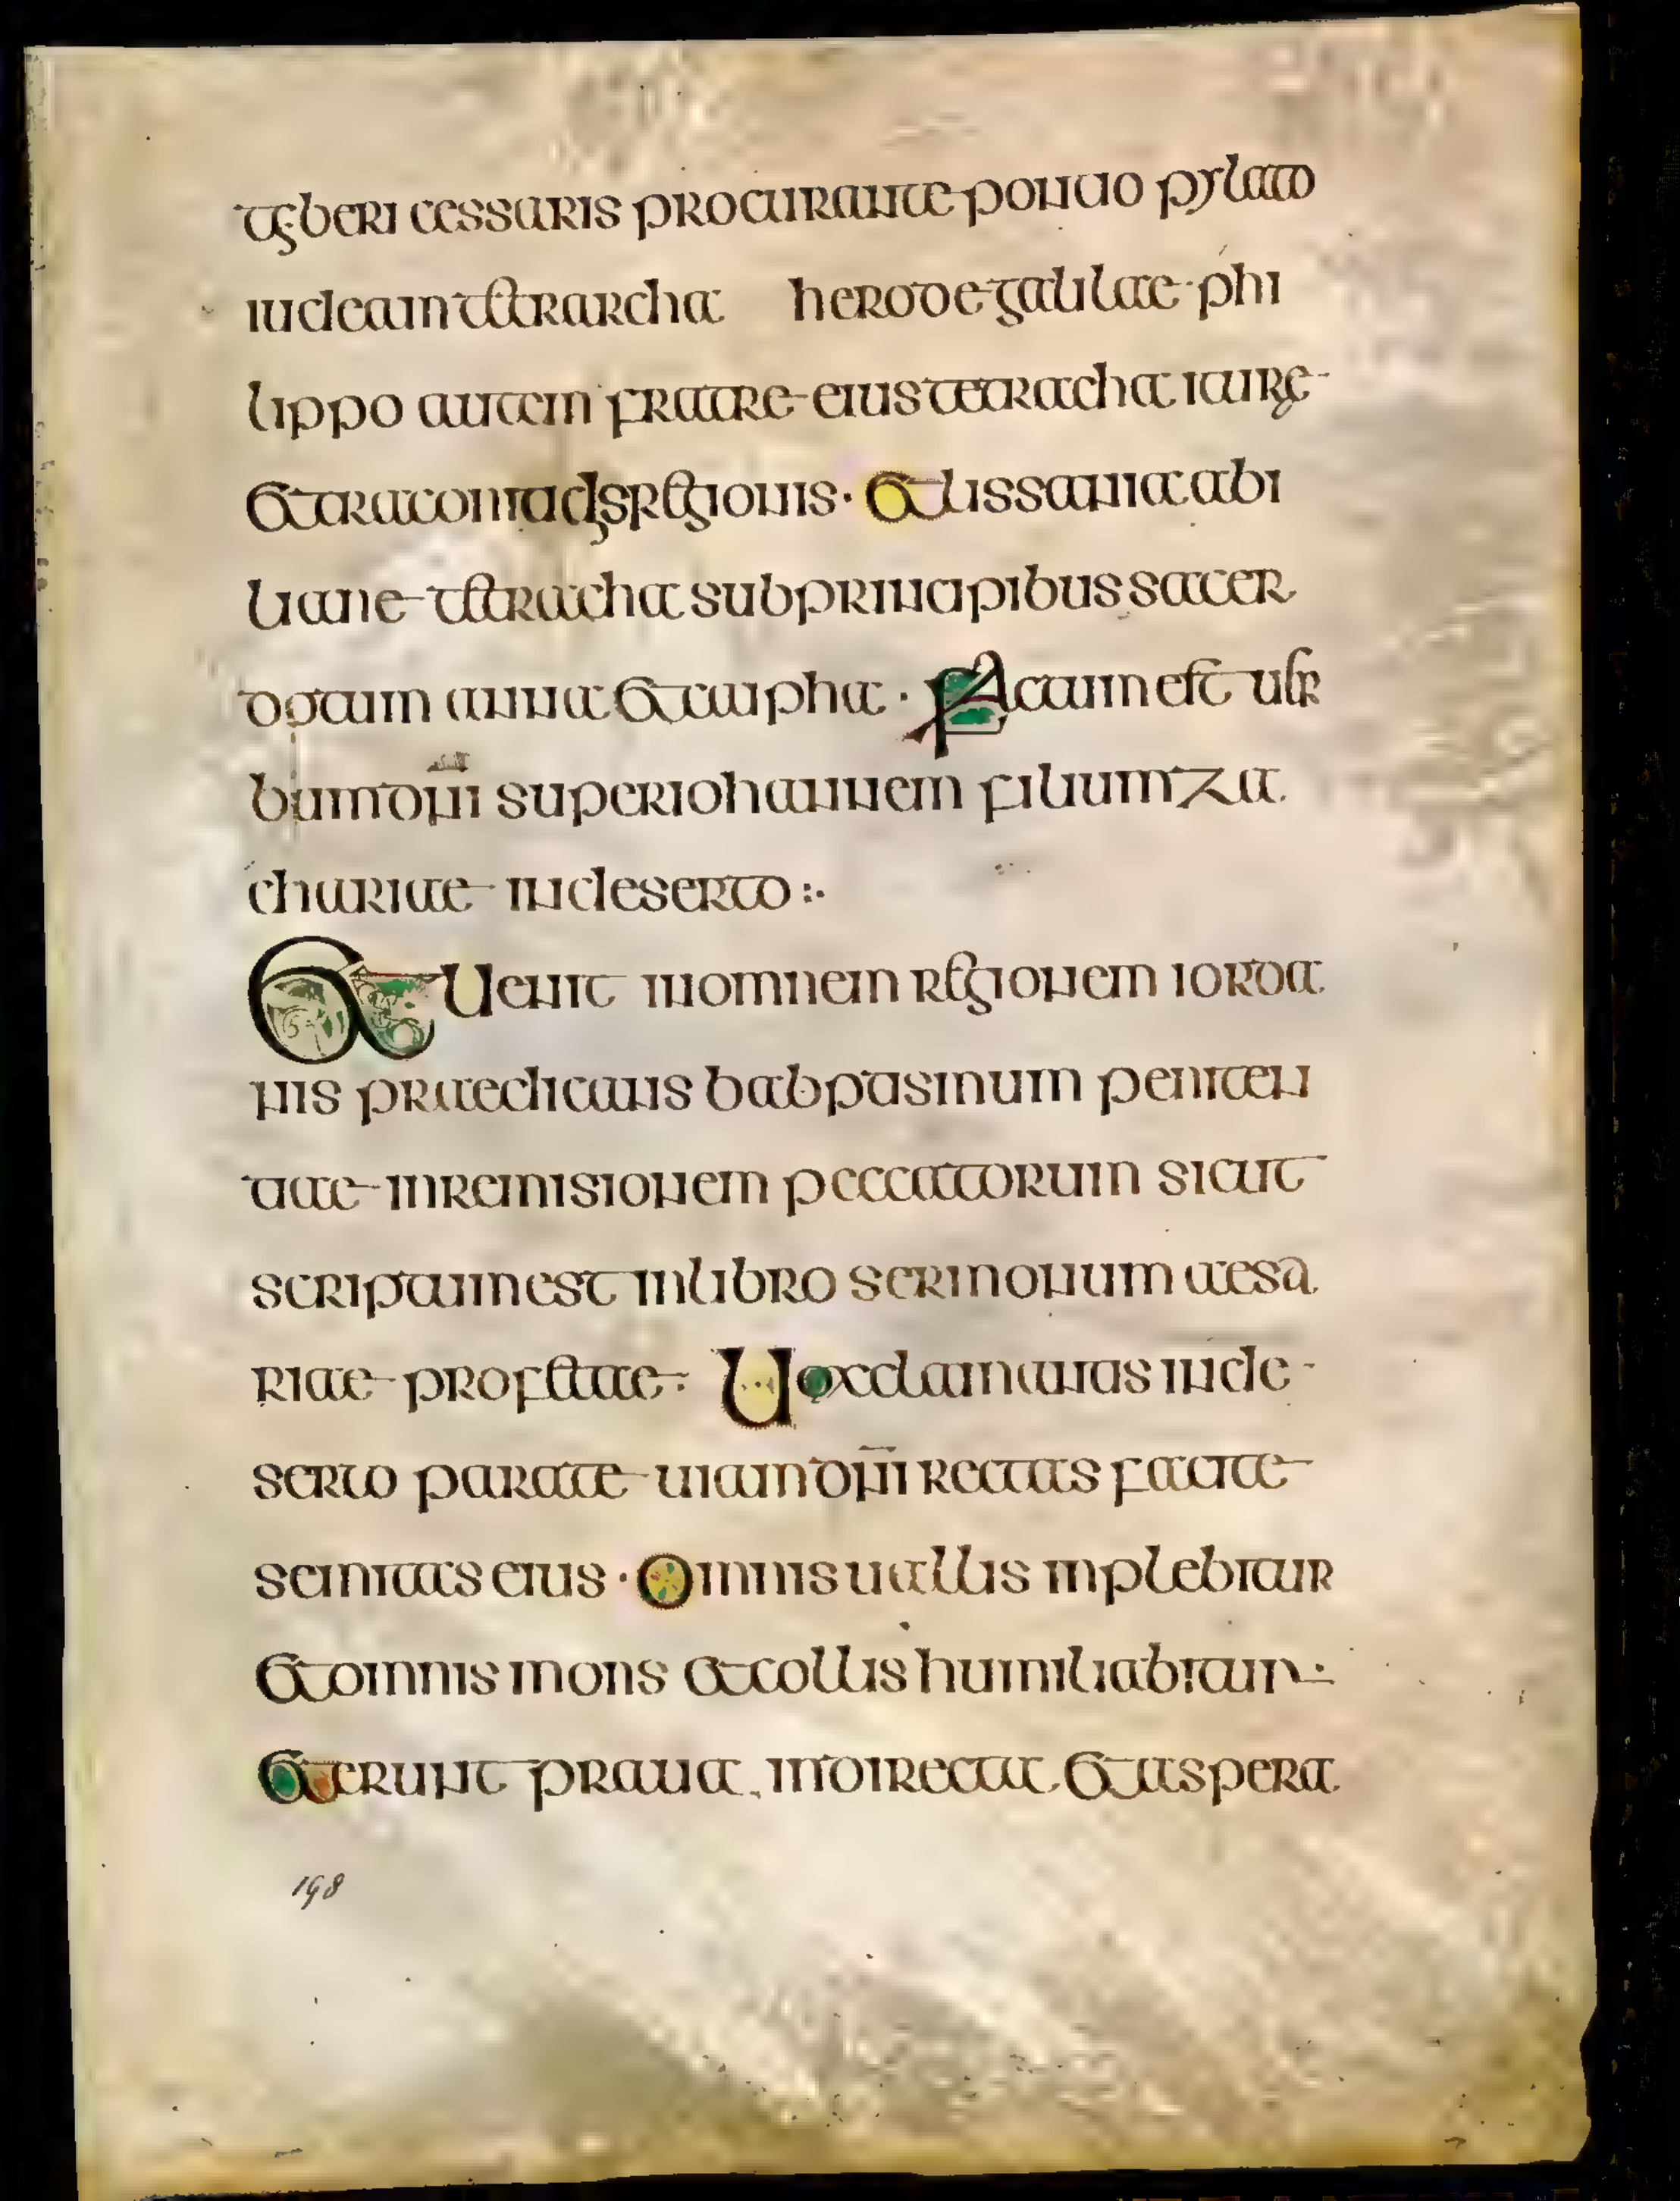 tiberi cessaris procurante pontio pylato
iudeam tetrarcha herode galilae · phi
lippo autem fratre eius tetracha iture
et traconitadis regionis · Et lissania abi
liane tetracha sub principibus sacer
dotum anna et caipha · Factum est uer
bum dni super iohannem filium za
chariae in deserto :·
Et Uenit in omnem regionem iorda
nis praedicans babptismum peniten
tiae in remisionem peccatorum sicut
scriptum est in libro sermonum aesa
riae profetae · Uox clamantis in de
serto parate uiam dni rectas facite
semitas eius · Omnis uallis inplebitur
et omnis mons et collis humiliabitur ·
Et erunt praua in directa et aspera
198